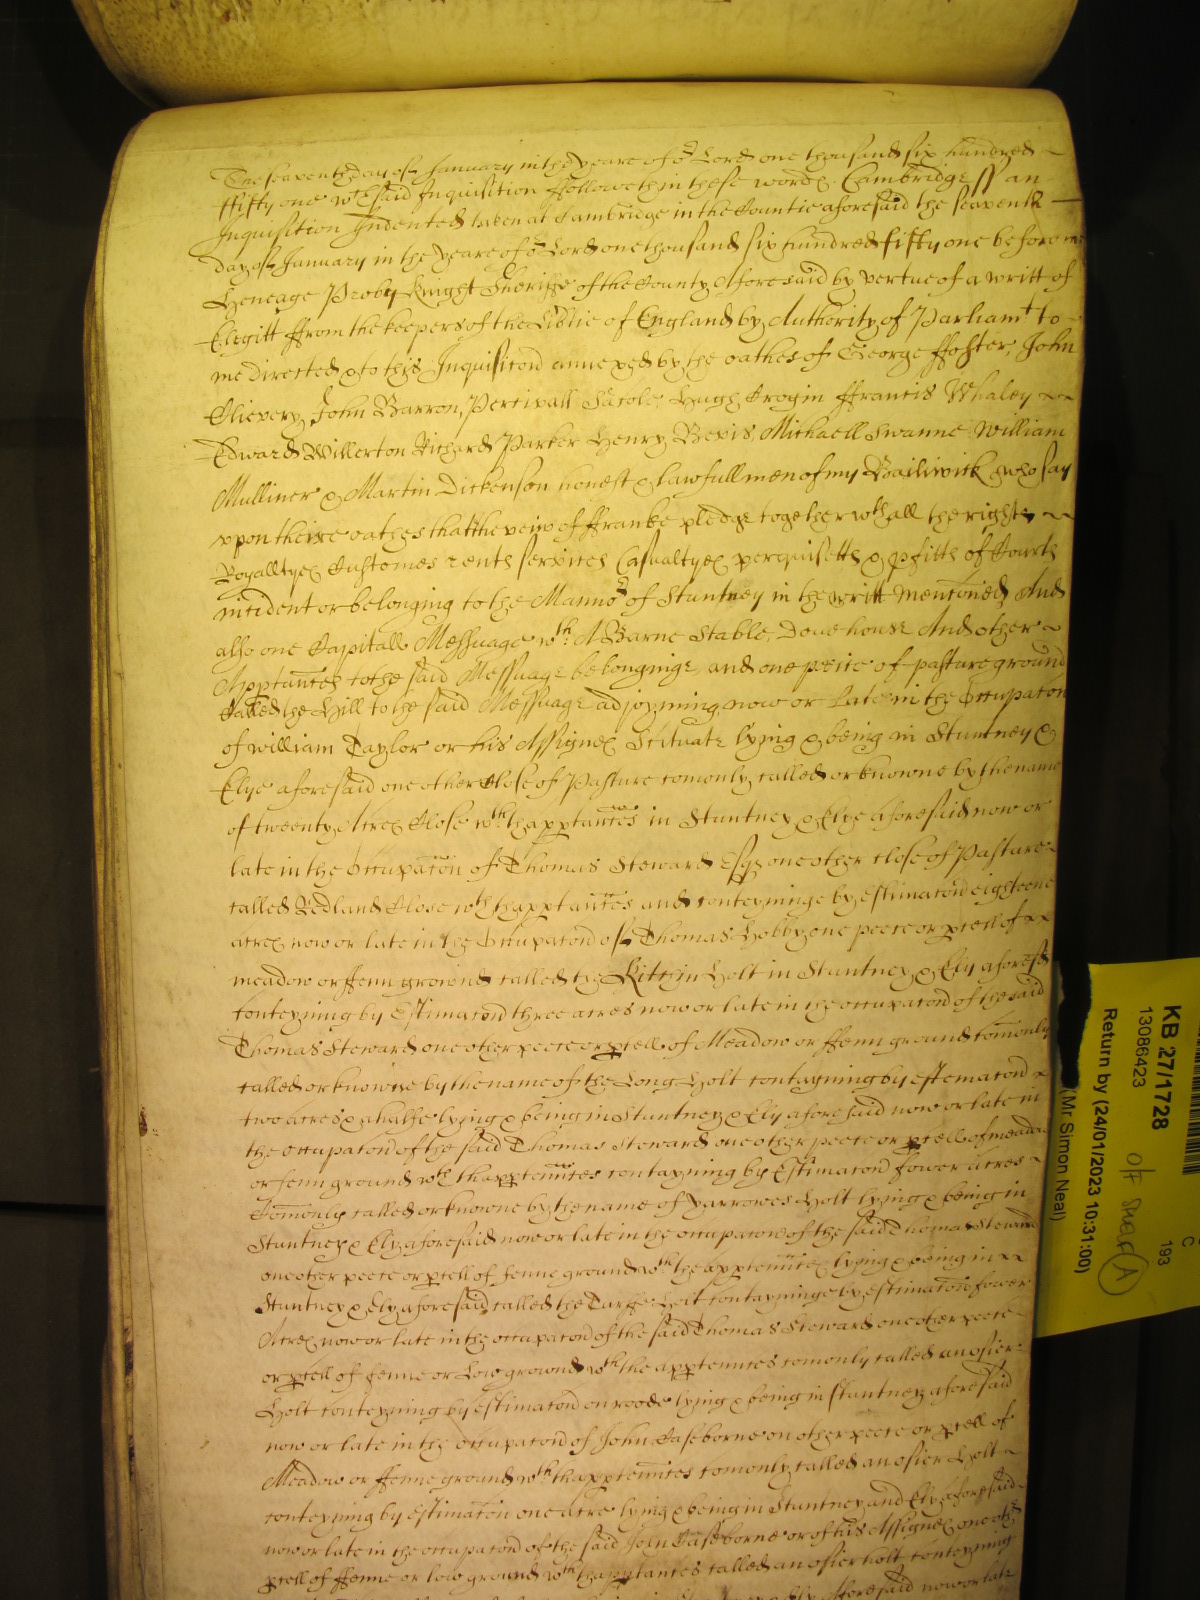 The seaventh day of January in the yeare of or Lord one thousand six hundred
ffifty one wch said Inquisition ffolloweth in these words. Cambridge ss an
Inquisition Indented taken at Cambridge in the Countie aforesaid the seaventh
day of January in the yeare of or Lord one thousand six hundred fifty one before me
Heneage Proby Knight Sheriffe of the County Aforesaid by vertue of a writt of
Elegitt ffrom the keepers of the Libtie of England by Authority of Parliamt to
me directed & to this Inquisicon annexed by the oathes of George ffoster, John
Clievery, John Barron, Percivall Hugh ffrancis Whaley
Edward Willerton Richard Parker Henry Bevis, Michaell Swanne William
Mulliner & Martin Dickenson honest & lawfull men of my Bailiwick who say
vpon theire oathes that the veiw of ffranke pledge together wth all the rights
Royalltyes Customes rents services Casualtyes perquisetts & pfitts of Courts
incident or belonging to the Mannor of Stuntney in the writt mentioned And
also one Capitall Messuage wth A Barne Stable, Dove house And other
Apptances to the said Messuage belonginge, and one peece of pasture ground
Called the Hill to the said Messuage adjoyning now or late in the Occupacon
of William Taylor or his Assignes Scituate lying & being in Stuntney &
Elye aforesaid one other Close of Pasture comonly called or knowne by the name
of twenty Acres Close wth thapptances in Stuntney & Elye aforesaid now or
late in the Occupacon of Thomas Steward Esqr one other close of Pasture
called Redland Close wth thapptances and conteyninge by Estimacon eighteene
acres now or late in the Occupacon of Thomas Hobby one peece or pcell of
meadow or ffenn ground called the Kitchin Holt in Stuntney & Ely aforesd
conteyning by Estimacon three acres now or late in the occupacon of the said
Thomas Steward one other peece or pcell of Meadow or ffenn ground comonly
called or knowne by the name of the Long Holt contayning by estemacon
two acres & a halfe lying & being in Stuntney & Ely aforesaid now or late in
the occupacon of the said Thomas Steward one other peece or pcell of meadow
or fenn ground wth thapptennces contayning by Estimacon fower acres
Comonly called or knowne by the name of yarrowes Holt lying & being in
Stuntney & Ely aforesaid now or late in the occupacon of the said Thomas Steward
one other peece or pcell of fenne ground wth the apptennces lying & being in
Stuntney & Ely aforesaid called the Turffe Holt contayninge by estimacon fower
Acres now or late in the occupacon of the said Thomas Steward one other peece
or pcell of fenne or Low ground wth the apptennces comonly called an osier
Holt conteyning by estimacon on roode lying & being in stuntney aforesaid
now or late in the occupacon of John Caseborne on other peece or pcell of
Meadow or ffenne ground wth thapptennces comonly called an osier Holt
conteyning by Estimacon one acre lying & being in Stuntney and Ely aforesaid
now or late in the occupacon of the said John Caseborne or of his Assignes one othr
pcell of ffenne or low ground wth thapptances called an osier holt conteyning
Ely Aforesaid now or late
KB 27/1728
13086423
Return by (24/01/2023 10:31:00)
(Mr Simon Neal)
C
193
A